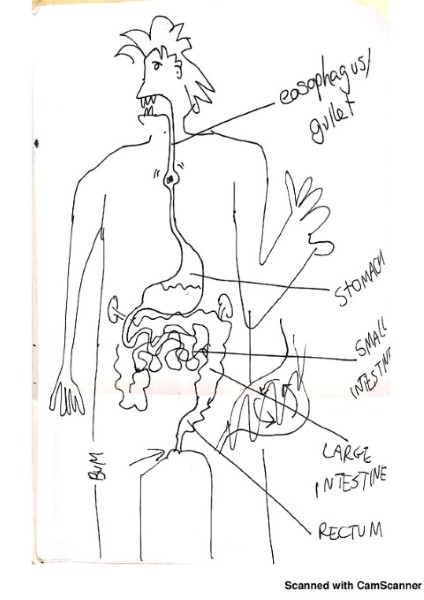 eosophagus/
gullet
STOMACH
SMALL
INTESTINE
LARGE
INTESTINE
RECTUM
BUM
Scanned with CamScanner